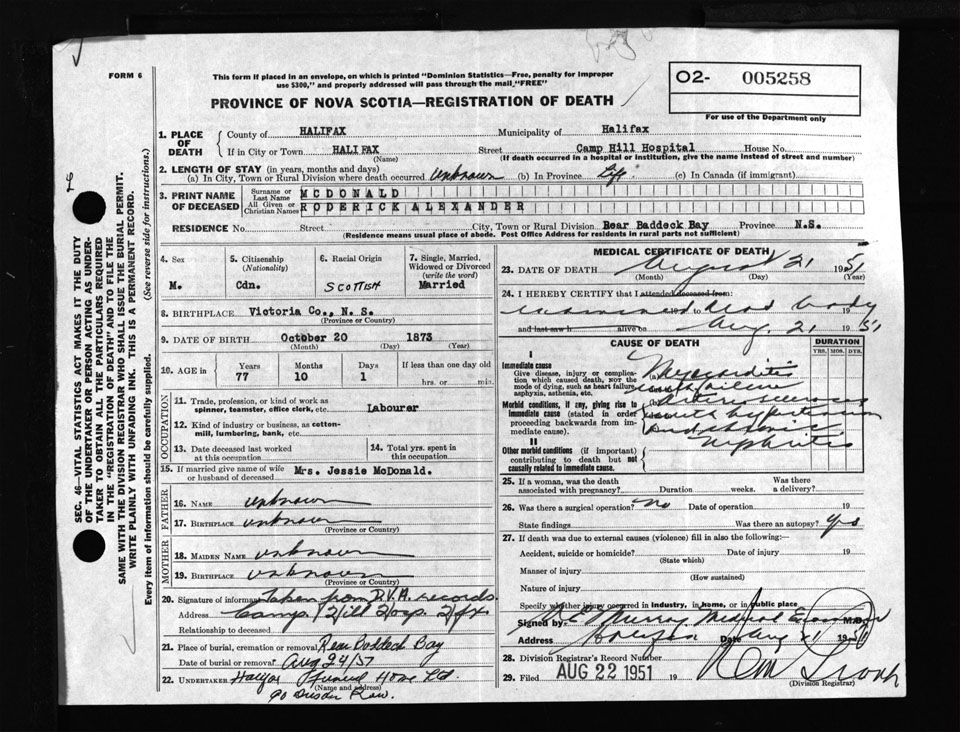 FORM 6
This form if placed in an envelope, on which is printed "Dominion Statistics—Free, penalty for improper
use $300," and properly addressed will pass through the mail "FREE"
O2- 005258
For use of the Department only
PROVINCE OF NOVA SCOTIA—REGISTRATION OF DEATH
SEC. 46—VITAL STATISTICS ACT MAKES IT THE DUTY
OF THE UNDERTAKER OR PERSON ACTING AS UNDER-
TAKER TO OBTAIN ALL THE PARTICULARS REQUIRED
IN THE "REGISTRATION OF DEATH" AND TO FILE THE
SAME WITH THE DIVISION REGISTRAR WHO SHALL ISSUE THE BURIAL PERMIT.
WRITE PLAINLY WITH UNFADING INK. THIS IS A PERMANENT RECORD.
Every item of information should be carefully supplied. (See reverse side for instructions.)
1. PLACE OF DEATH
County of HALIFAX Municipality of Halifax
If in City or Town HALIFAX Street Camp Hill Hospital House No.
(Name) (If death occurred in a hospital or institution, give the name instead of street and number)
2. LENGTH OF STAY (in years, months and days)
(a) In City, Town or Rural Division where death occurred unknown (b) In Province Life (c) In Canada (if immigrant)
3. PRINT NAME OF DECEASED
Surname or Last Name MCDONALD
All Given or Christian Names RODERICK ALEXANDER
RESIDENCE No. Street City, Town or Rural Division Rear Baddeck Bay Province N.S.
(Residence means usual place of abode. Post Office Address for residents in rural parts not sufficient)
4. Sex
M.
5. Citizenship
(Nationality)
Cdn.
6. Racial Origin
SCOTTISH
7. Single, Married,
Widowed or Divorced
(write the word)
Married
8. BIRTHPLACE Victoria Co., N. S.
(Province or Country)
9. DATE OF BIRTH October 20 1873
(Month) (Day) (Year)
10. AGE in Years Months Days If less than one day old
77 10 1 hrs. or min.
OCCUPATION
11. Trade, profession, or kind of work as
spinner, teamster, office clerk, etc. Labourer
12. Kind of industry or business, as cotton-
mill, lumbering, bank, etc.
13. Date deceased last worked
at this occupation
14. Total yrs. spent in
this occupation
15. If married give name of wife
or husband of deceased Mrs. Jessie McDonald.
FATHER
16. NAME unknown
17. BIRTHPLACE unknown
(Province or Country)
MOTHER
18. MAIDEN NAME unknown
19. BIRTHPLACE unknown
(Province or Country)
20. Signature of informant Taken from D.V.A. records
Address Camp Hill Hosp. Hfx.
Relationship to deceased
21. Place of burial, cremation or removal Rear Baddeck Bay
Date of burial or removal Aug 24/51
22. UNDERTAKER Halifax Funeral Home Ltd
(Name and address)
MEDICAL CERTIFICATE OF DEATH
23. DATE OF DEATH August 21 1951
(Month) (Day) (Year)
24. I HEREBY CERTIFY that I attended deceased from:
examined dead body 19
and last saw h alive on Aug. 21 1951
CAUSE OF DEATH
DURATION
YRS. MOS. DYS.
I
Immediate cause
Give disease, injury or complica-
tion which caused death, NOT the
mode of dying, such as heart failure,
asphyxia, asthenia, etc.
(a) Myocarditis
Morbid conditions, if any, giving rise to
immediate cause (stated in order
proceeding backwards from im-
mediate cause).
(b) Arteriosclerosis
with hypertension
and chronic
nephritis
II
Other morbid conditions (if important)
contributing to death but not
causally related to immediate cause.
25. If a woman, was the death
associated with pregnancy? Duration weeks. Was there
a delivery?
26. Was there a surgical operation? no Date of operation 19
State findings Was there an autopsy? yes
27. If death was due to external causes (violence) fill in also the following:—
Accident, suicide or homicide? Date of injury 19
(State which)
Manner of injury
(How sustained)
Nature of injury
Specify whether injury occurred in industry, in home, or in public place
Signed by Murray Medical Examiner M.D.
Address Halifax Date Aug 21 1951
28. Division Registrar's Record Number
29. Filed AUG 22 1951 19
(Division Registrar)